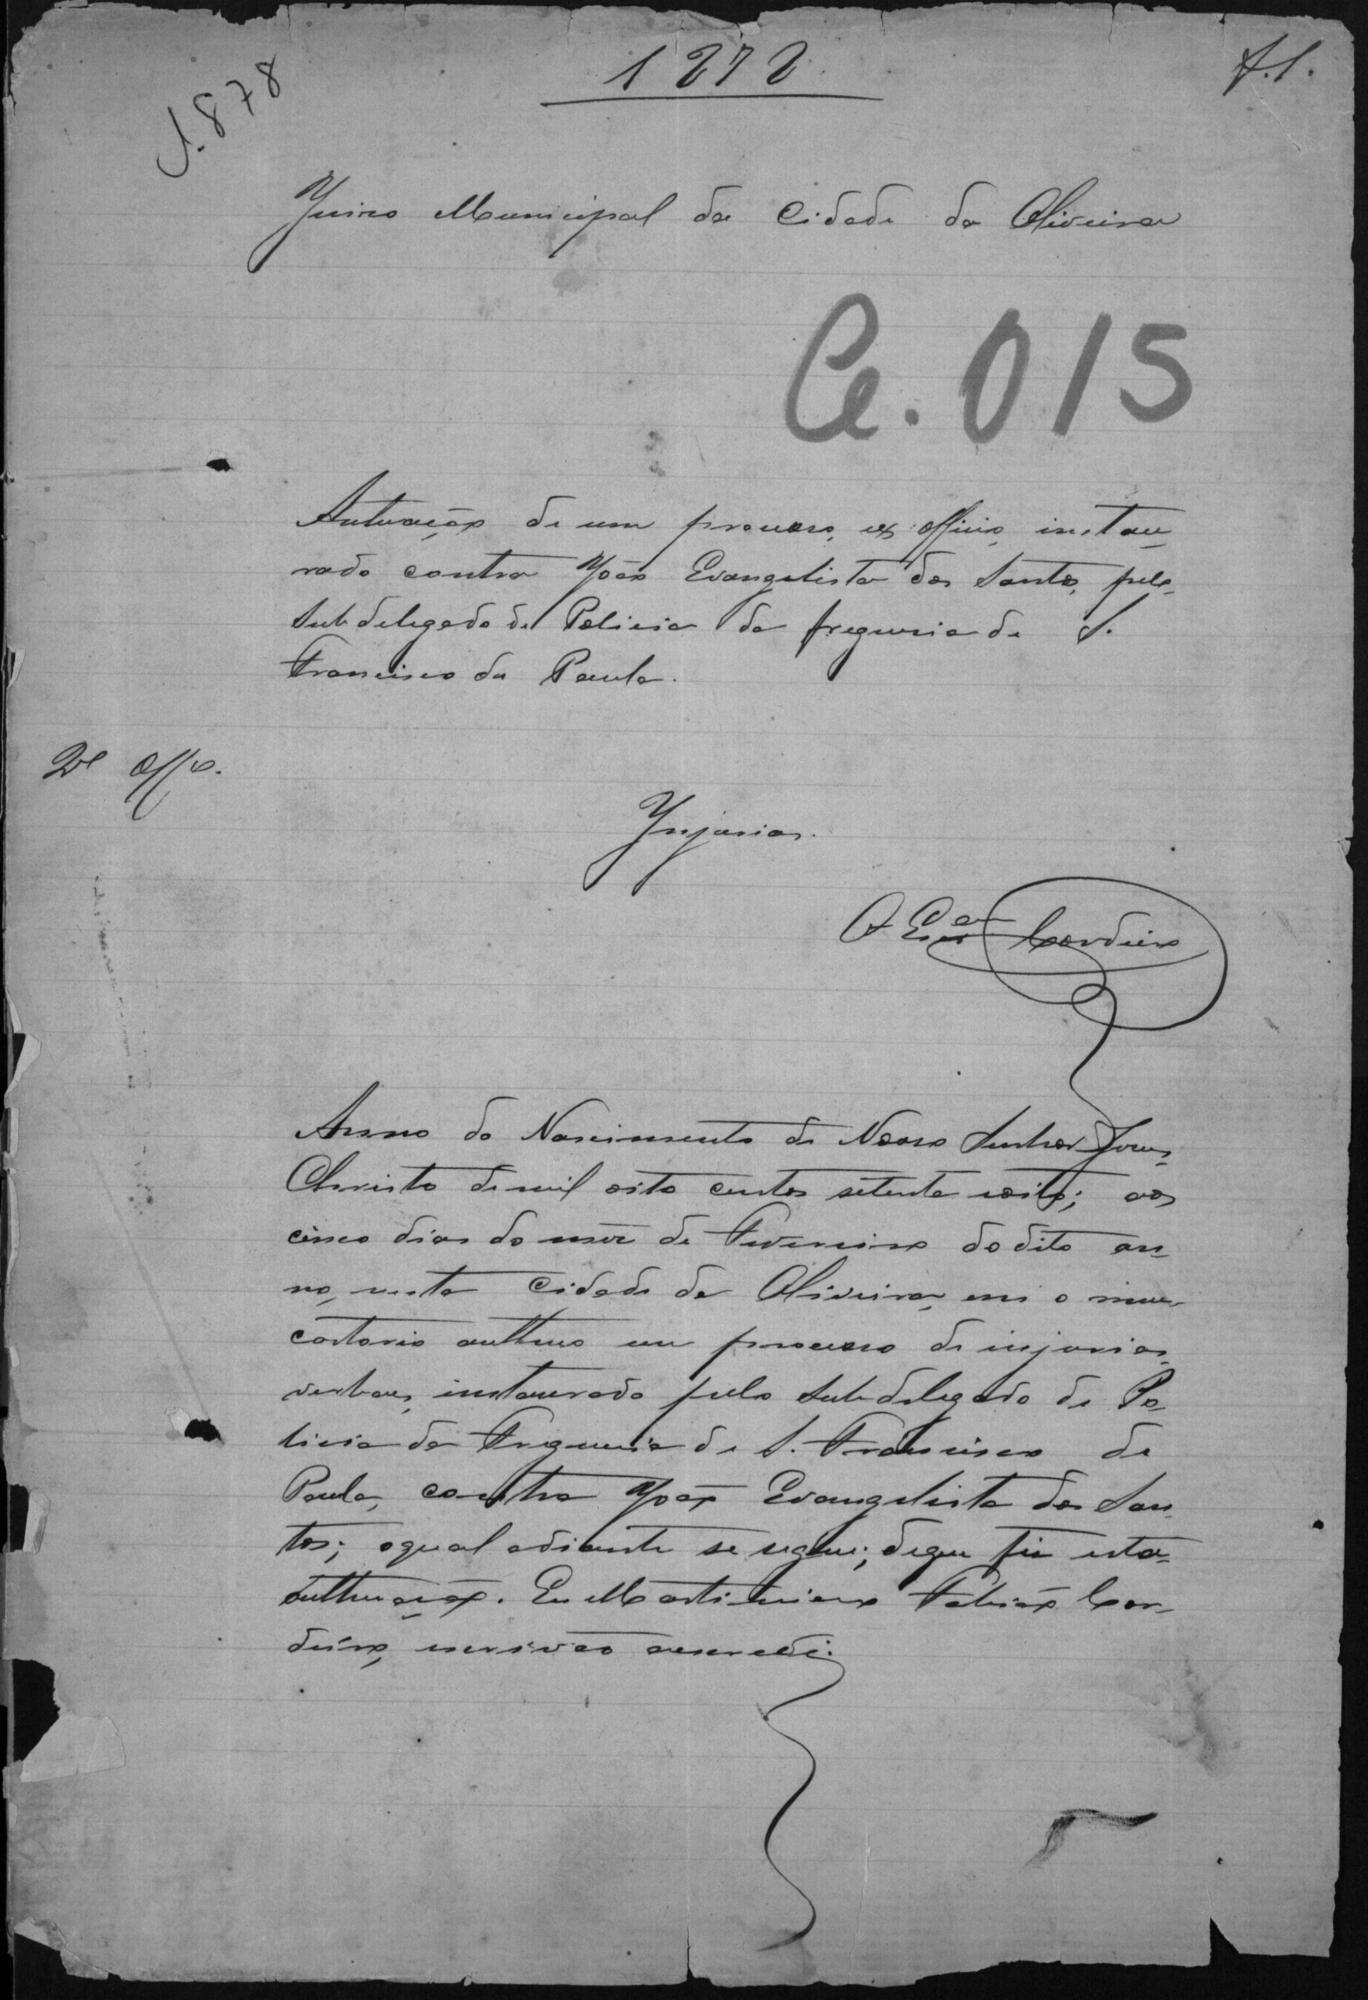 1878
f.1.
1.878
Juizo Municipal da Cidade da Oliveira
Cx. 015
Autuação de um processo, ex officio, instau-
rado contra João Evangelista dos Santos, pelo
Subdelegado de Policia da freguesia de S.
Francisco de Paula.
Injurias.
O Escam Cordeiro
Anno do Nascimento de Nosso Senhor Jesus
Christo de mil oito centos setenta e oito; aos
cinco dias do mez de Fevereiro do dito an-
no, nesta Cidade da Oliveira, em o meu
cartorio authuo um processo de injurias
verbaes, instaurado pelo Subdelegado de Po-
licia da Freguesia de S. Francisco de
Paula, contra João Evangelista dos San-
tos; o qual adiante se segue; de que fiz esta
authuação. Eu Martiniano Fabião Cor-
deiro, escrivão a escrevi.